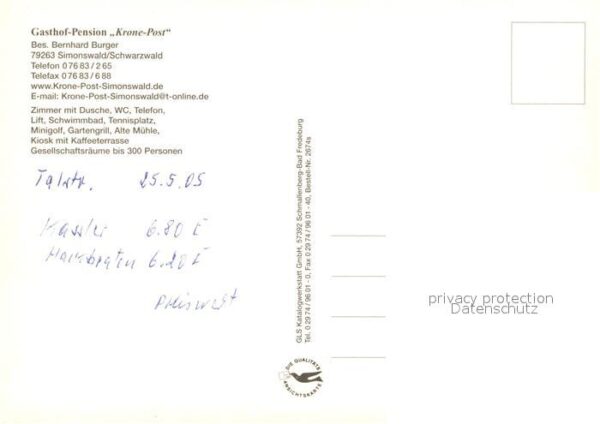 Gasthof-Pension „Krone-Post“
Bes. Bernhard Burger
79263 Simonswald/Schwarzwald
Telefon 0 76 83 / 2 65
Telefax 0 76 83 / 6 88
www.Krone-Post-Simonswald.de
E-mail: Krone-Post-Simonswald@t-online.de
Zimmer mit Dusche, WC, Telefon,
Lift, Schwimmbad, Tennisplatz,
Minigolf, Gartengrill, Alte Mühle,
Kiosk mit Kaffeeterrasse
Gesellschaftsräume bis 300 Personen
25.5.05
Kassler 6.80 €
Hackbraten 6.20 €
Preiswert
GLS Katalogwerkstatt GmbH, 57392 Schmallenberg-Bad Fredeburg
Tel. 0 29 74 / 96 01 - 0, Fax 0 29 74 / 96 01 - 40, Bestell-Nr. 2674s
DIE QUALITÄTS
ANSICHTSKARTE
privacy protection
Datenschutz